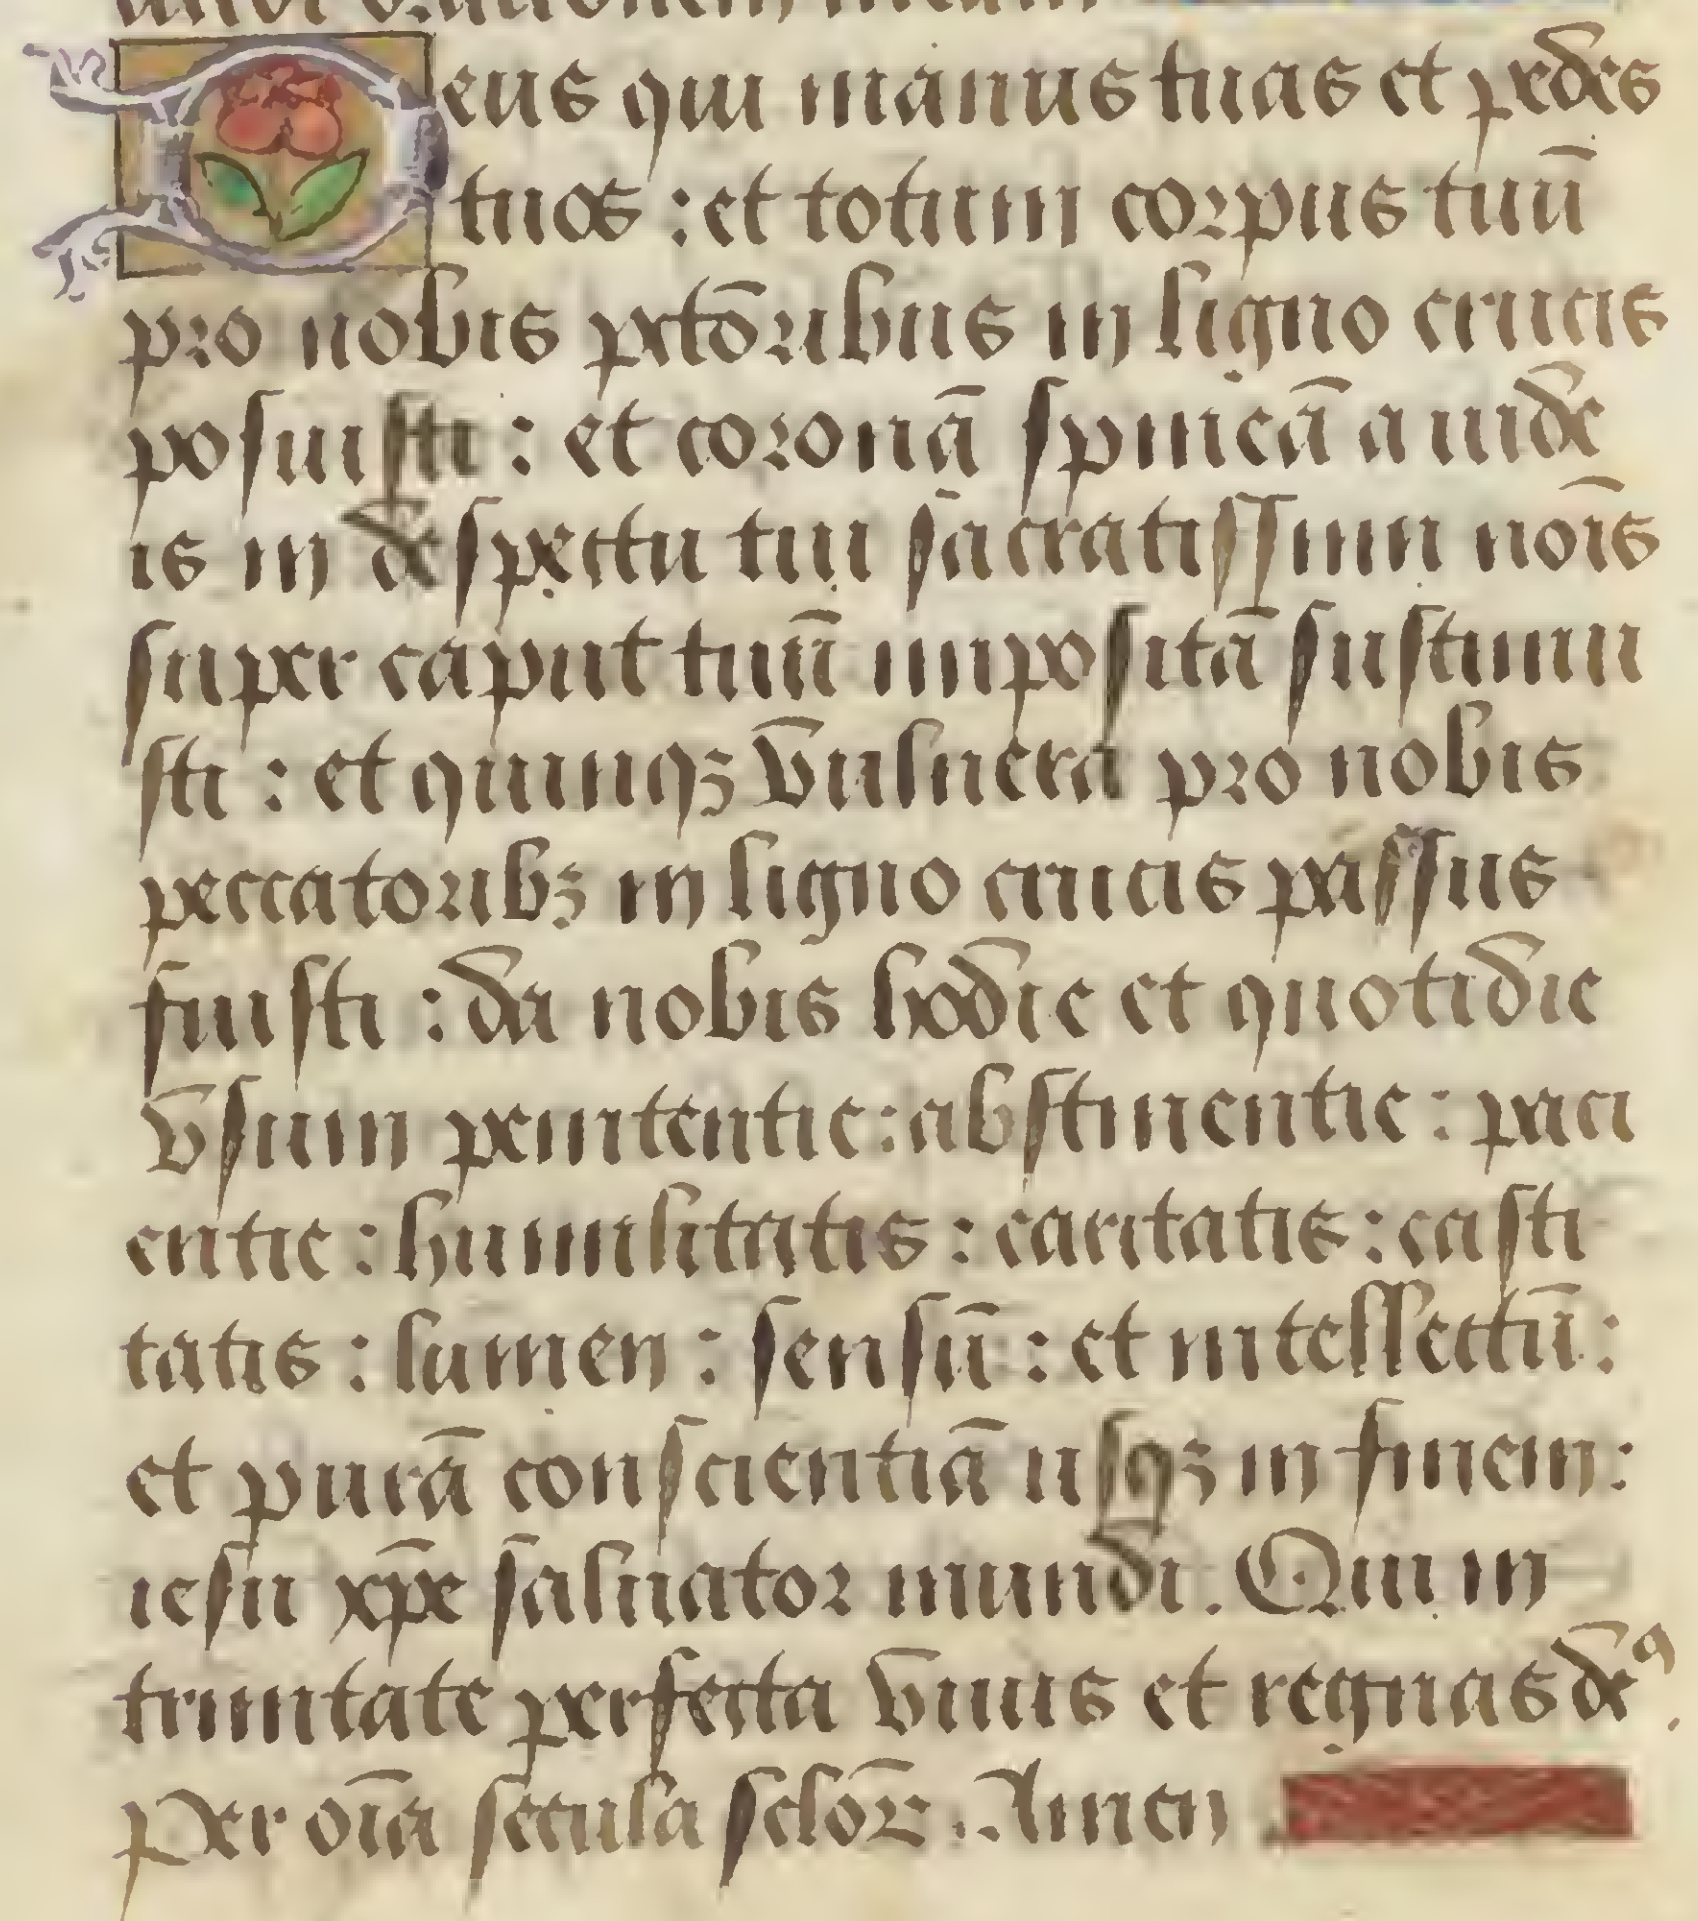 Deus qui manus tuas et pedes
tuos : et totum corpus tuū
pro nobis pctōribus in ligno crucis
posuisti : et coronā spineā a iude
is in despectu tui sacratissimi nōis
super caput tuū impositā sustinui
sti : et quinqꝫ vulnera pro nobis
peccatoribꝫ in ligno crucis passus
fuisti : da nobis hodie et quotidie
vsum penitentie : abstinentie : paci
entie : humilitatis : caritatis : casti
tatis : lumen : sensū : et intellectū :
et purā conscientiā usqꝫ in finem :
iesu xp̄e saluator mundi . Qui in
trinitate perfecta viuis et regnas deꝰ .
Per oīa secula sclōꝝ . Amen